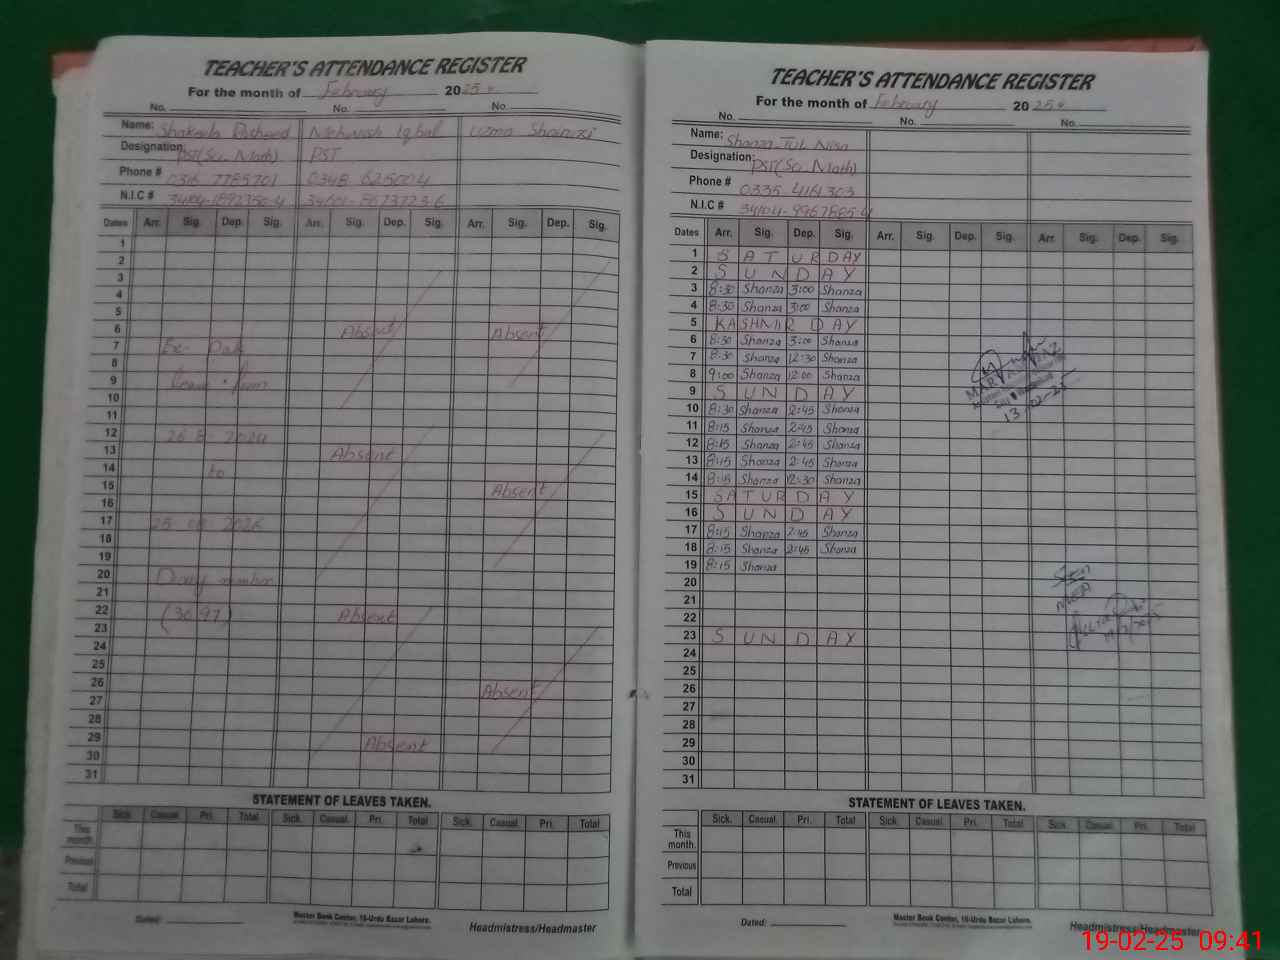 TEACHER'S ATTENDANCE REGISTER
For the month of February 2025
No. No. No.
Name: Shakeela Rasheed Mehwish Iqbal Uzma Shamazi
Designation: PST(Sci. Math) PST
Phone # 0316 7785701 0348 625004
N.I.C # 34104-1892350-4 34101-8673723 6
Dates Arr. Sig. Dep. Sig. Arr. Sig. Dep. Sig. Arr. Sig. Dep. Sig.
1
2
3
4
5
6 Absent Absent
7 Ex- Pak
8
9 leave
10
11
12 26-8-2024
13 Absent
14 to
15 Absent
16
17 2026
18
19
20 Diary number
21
22 (3697) Absent
23
24
25
26 Absent
27
28
29 Absent
30
31
STATEMENT OF LEAVES TAKEN.
Sick. Casual. Pri. Total Sick. Casual. Pri. Total Sick. Casual. Pri. Total
This month.
Previous
Total
Dated: Master Book Center, 16-Urdu Bazar Lahore. Headmistress/Headmaster
TEACHER'S ATTENDANCE REGISTER
For the month of February 2025
No. No. No.
Name: Shanza Tul Nisa
Designation: PST(Sci. Math)
Phone # 0335 4161303
N.I.C # 34104-9967885-4
Dates Arr. Sig. Dep. Sig. Arr. Sig. Dep. Sig. Arr. Sig. Dep. Sig.
1 SATURDAY
2 SUNDAY
3 8:30 Shanza 3:00 Shanza
4 8:30 Shanza 3:00 Shanza
5 KASHMIR DAY
6 8:30 Shanza 3:00 Shanza
7 8:30 Shanza 12:30 Shanza
8 9:00 Shanza 12:00 Shanza
9 SUNDAY
10 8:30 Shanza 2:45 Shanza
11 8:15 Shanza 2:45 Shanza
12 8:15 Shanza 2:45 Shanza
13 8:45 Shanza 2:45 Shanza
14 8:15 Shanza 12:30 Shanza
15 SATURDAY
16 SUNDAY
17 8:15 Shanza 2:45 Shanza
18 8:15 Shanza 2:45 Shanza
19 8:15 Shanza
20
21
22
23 SUNDAY
24
25
26
27
28
29
30
31
13-02-25
Seen
STATEMENT OF LEAVES TAKEN.
Sick. Casual. Pri. Total Sick. Casual. Pri. Total Sick. Casual. Pri. Total
This month.
Previous
Total
Dated: Master Book Center, 16-Urdu Bazar Lahore. Headmistress/Headmaster
19-02-25 09:41